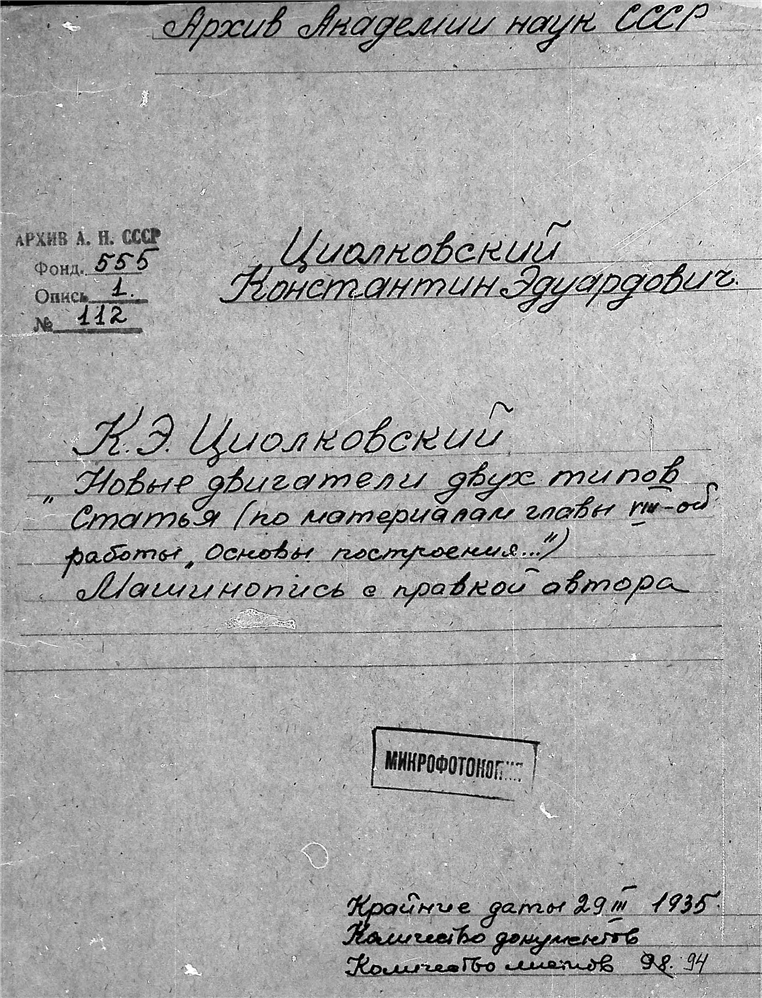 Архив Академии наук СССР
АРХИВ А. Н. СССР
Фонд. 555
Опись 1.
№ 112
Циолковский
Константин Эдуардович.
К.Э. Циолковский
"Новые двигатели двух типов
Статья (по материалам главы VIII-ой
работы „Основы построения...")
Машинопись с правкой автора
МИКРОФОТОКОПИЯ
Крайние даты 29 III 1935
Количество документов
Количество листов 98. 94